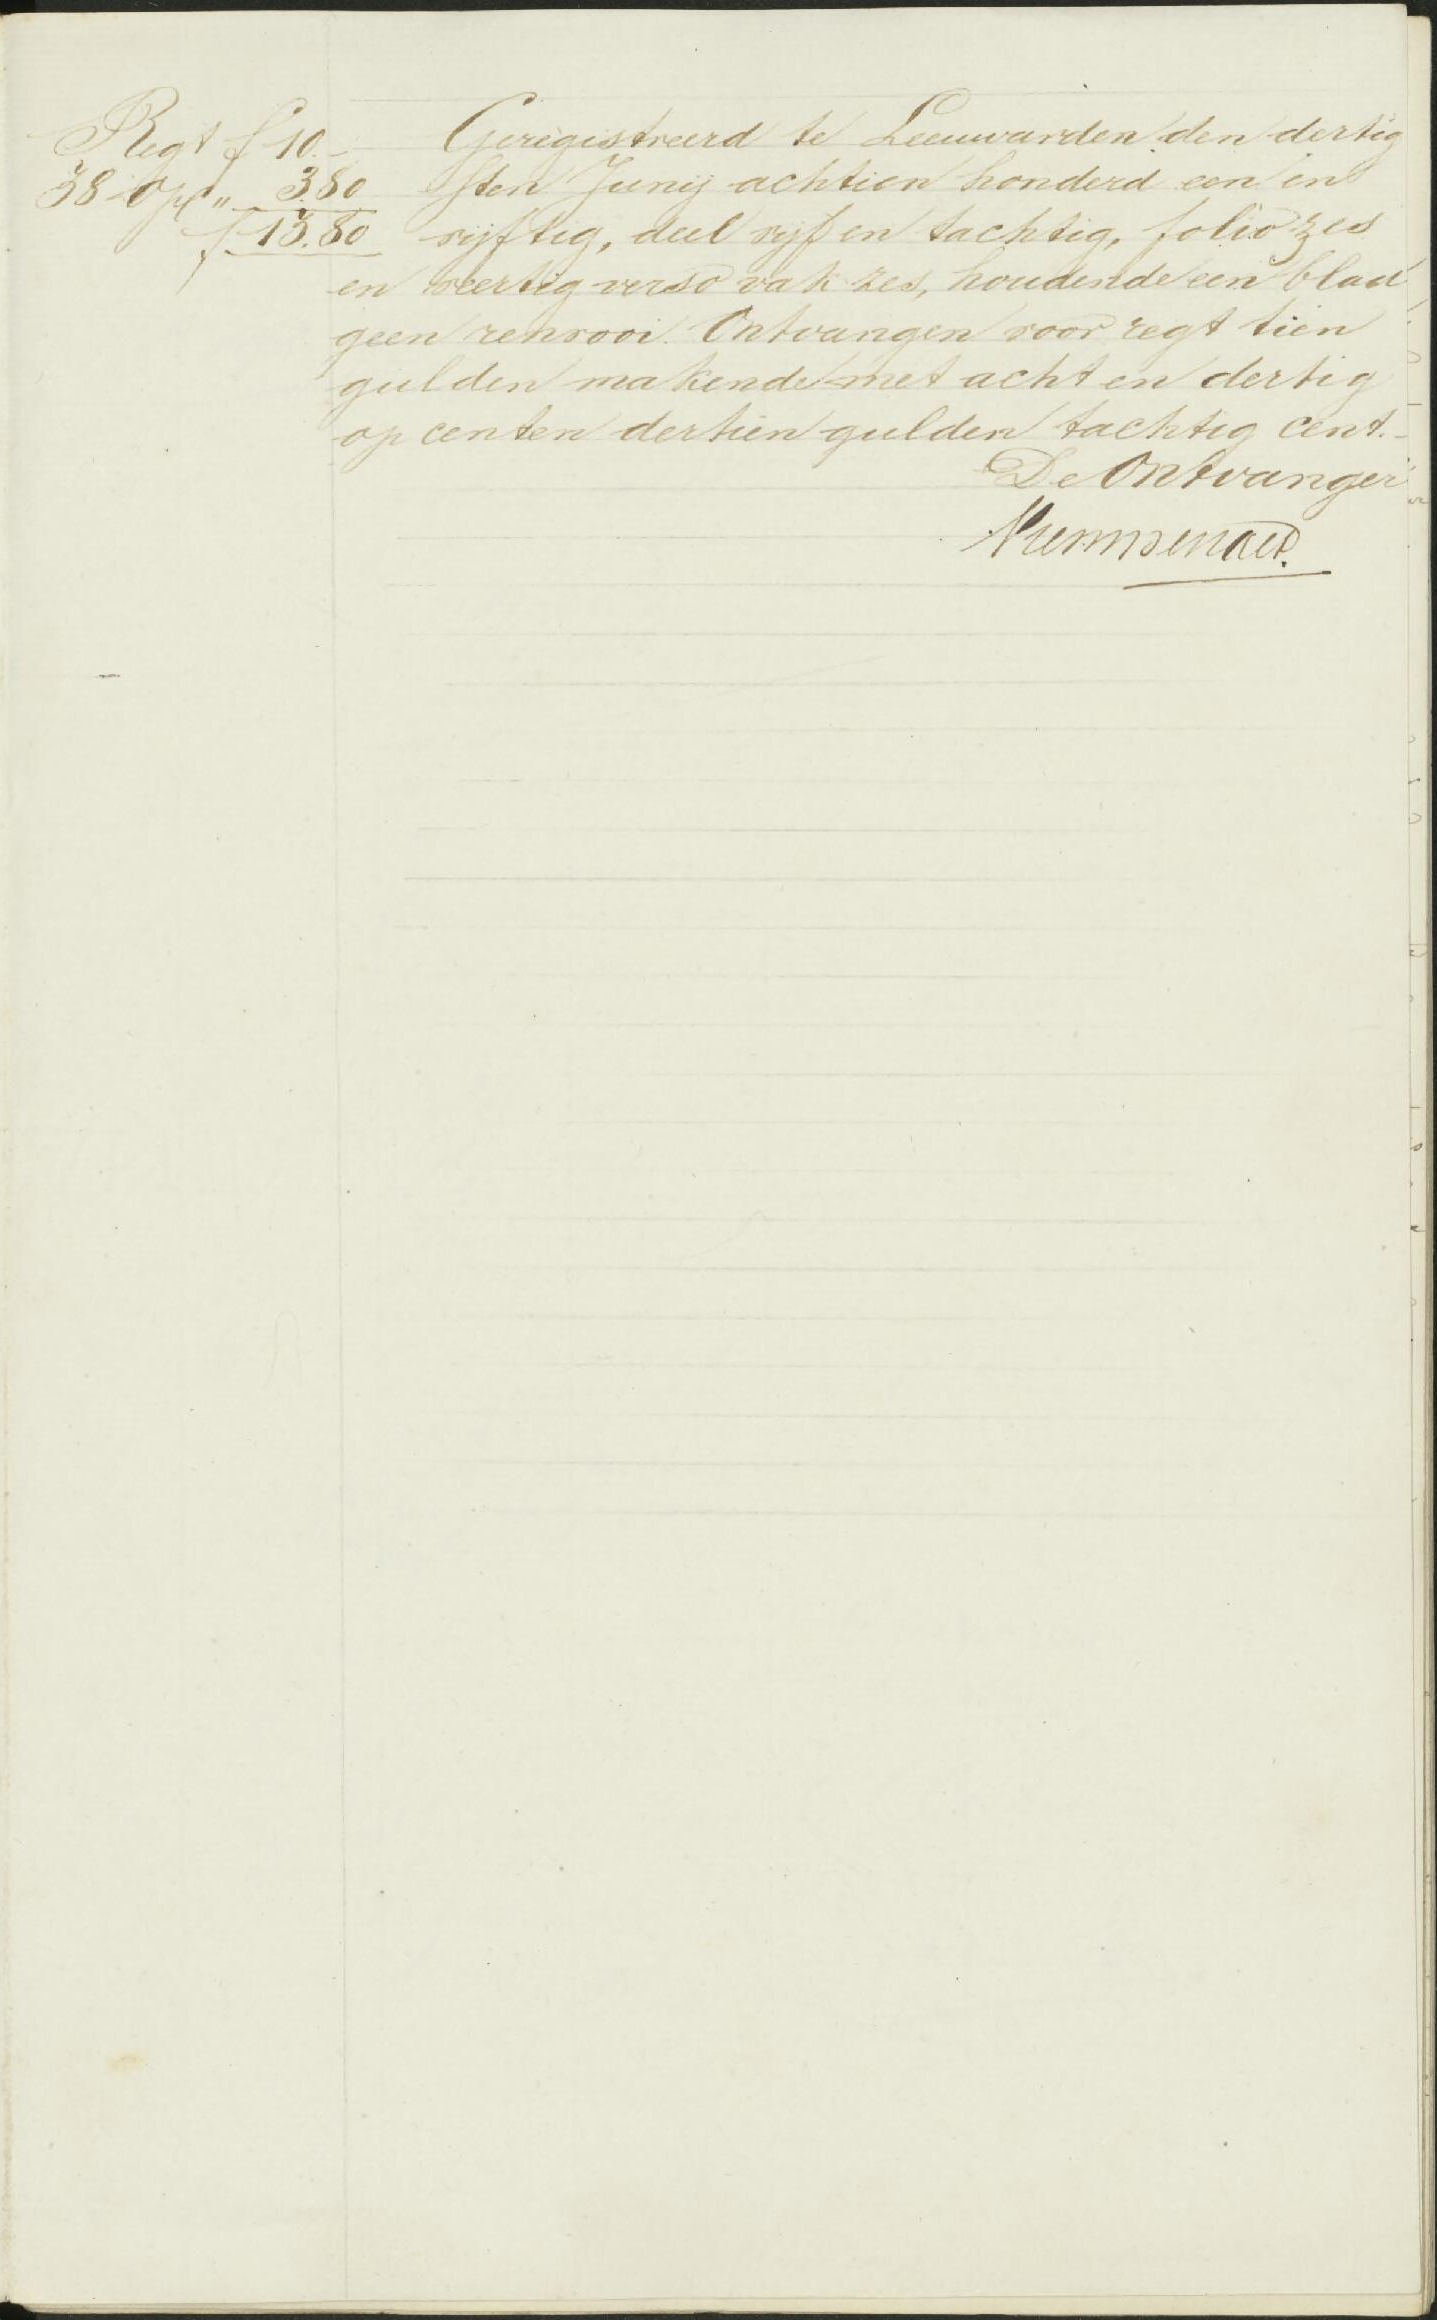 Regt f 10.-
38 Opc " 3.80
f 13.80
Geregistreerd te Leeuwarden den dertig
sten Junij achtien honderd een en
vijftig, deel vijf en tachtig, folio zes
en veertig verso vak zes, houdende een blad
geen renvooi. Ontvangen voor regt tien
gulden makende met acht en dertig
op centen dertien gulden tachtig cent.-
De Ontvanger